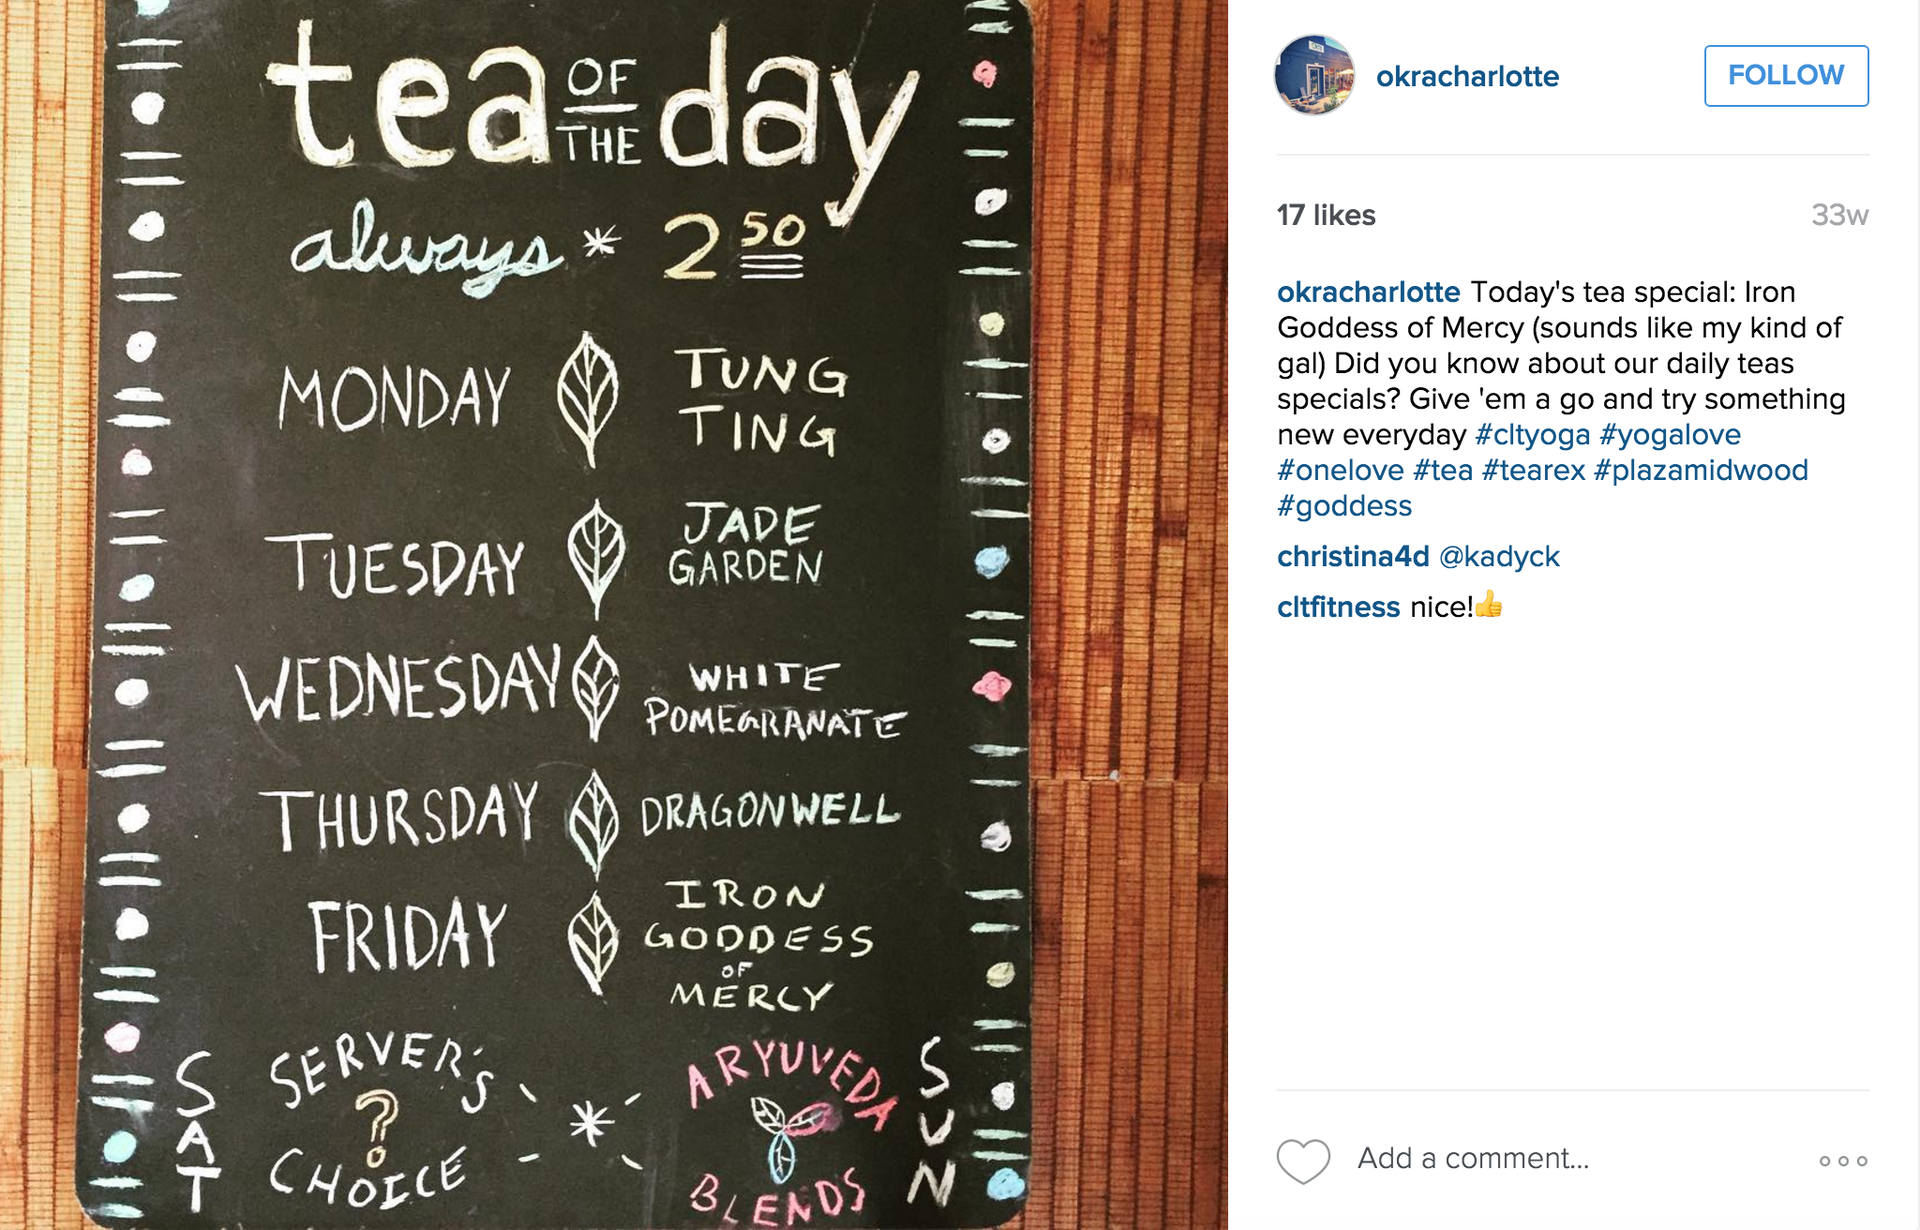 tea OF THE day
always * 2 50
MONDAY TUNG
TING
TUESDAY JADE
GARDEN
WEDNESDAY WHITE
POMEGRANATE
THURSDAY DRAGONWELL
FRIDAY IRON
GODDESS
OF
MERCY
SAT SERVER'S
?
CHOICE
*
SUN ARYUVEDA
BLENDS
okracharlotte
FOLLOW
17 likes 33w
okracharlotte Today's tea special: Iron
Goddess of Mercy (sounds like my kind of
gal) Did you know about our daily teas
specials? Give 'em a go and try something
new everyday #cltyoga #yogalove
#onelove #tea #tearex #plazamidwood
#goddess
christina4d @kadyck
cltfitness nice!👍
Add a comment...